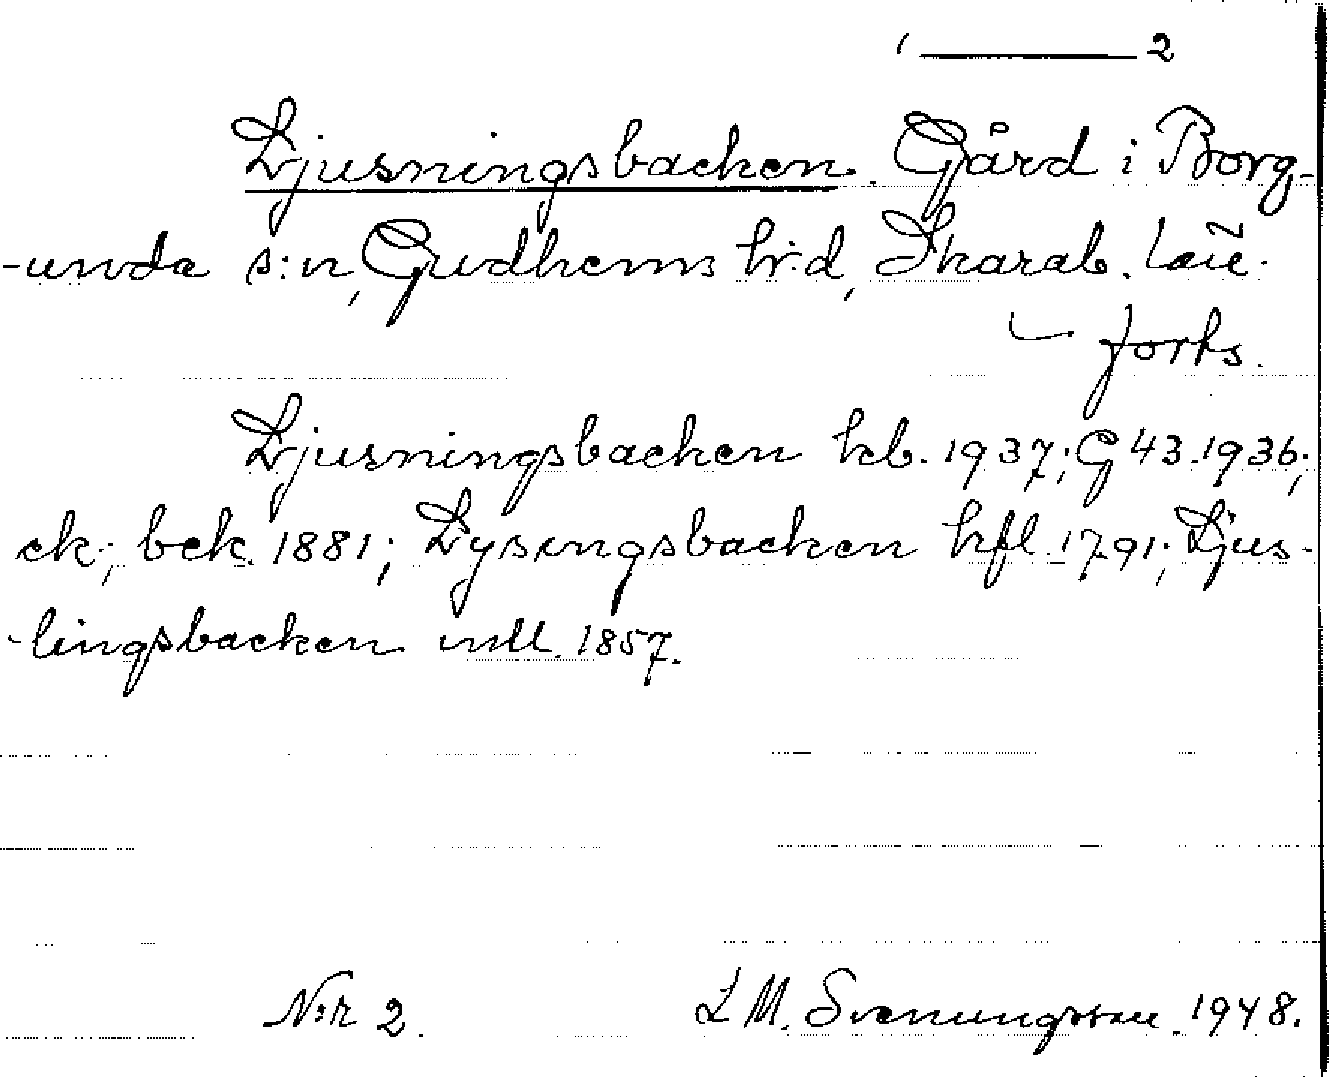 2
Ljusningsbacken. Gård i Borg-
-unda s:n, Gudhems hr:d, Skarab. län.
forts.
Ljusningsbacken kb. 1937; G 43. 1936;
ek; bek. 1881; Lysingsbacken hfl. 1791; Ljus-
-lingsbacken mll. 1857.
N:r 2. L M. Svenungsson. 1948.